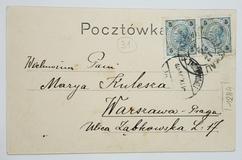 Pocztówka
31
Wielmożna Pani
Marya Kulesza
Warszawa-Praga
Ulica Ząbkowska L. 17